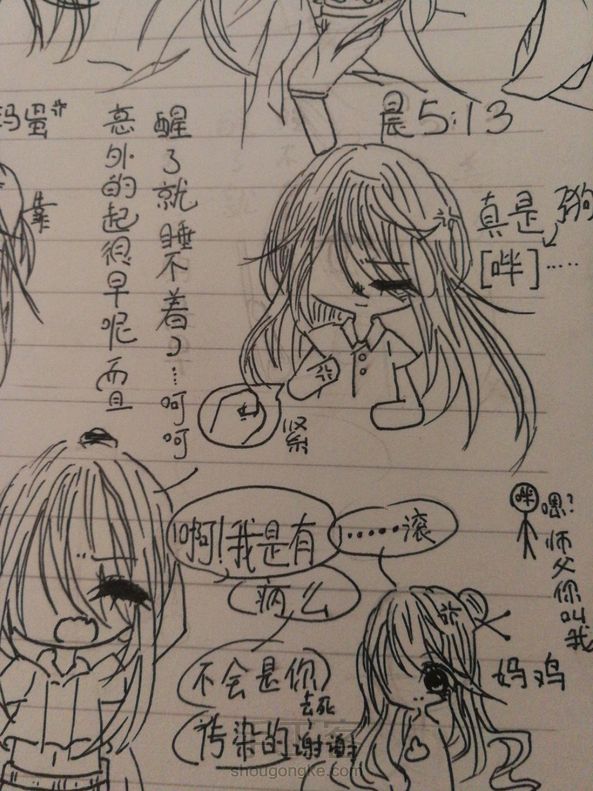 玛蛋
晨5:13
意外的起很早呢而且
醒了就睡不着了…呵呵
靠
真是狗
[哔]……
紧
啊!我是有
病么
……滚
不会是你
污染的
去死
谢谢
哔
嗯?
师父你叫我
妈鸡
shougongke.com